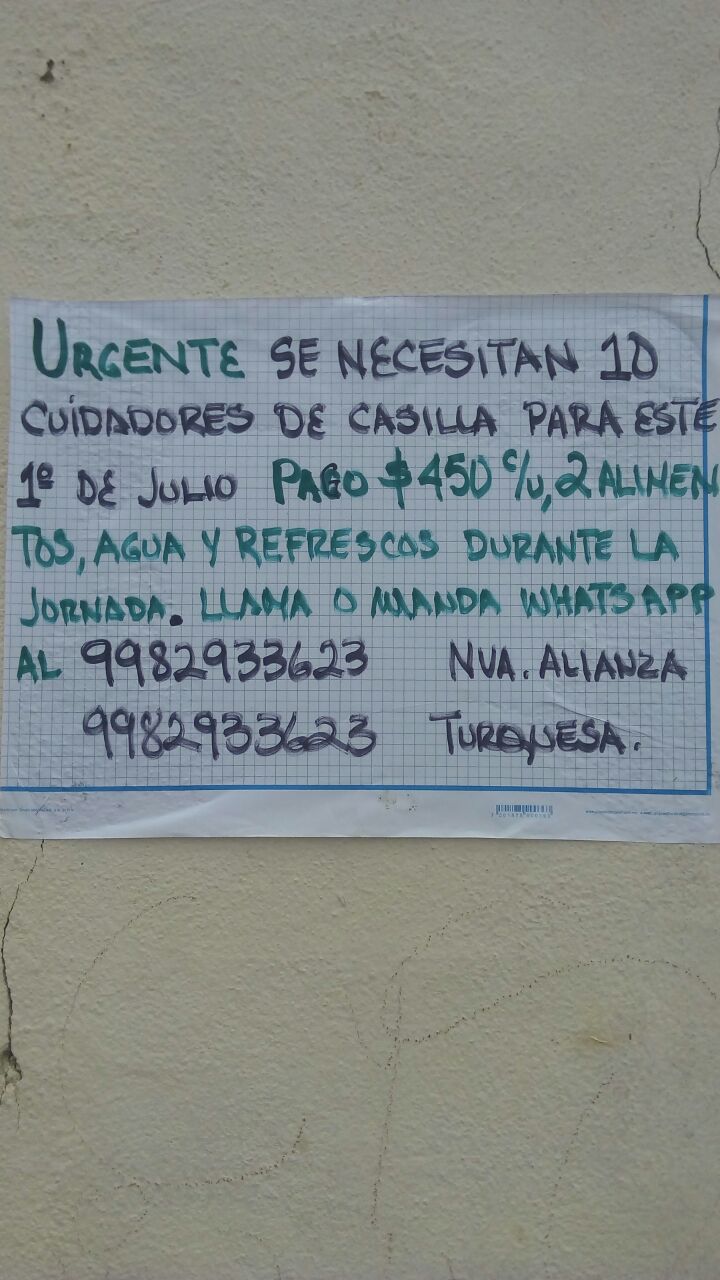 URGENTE SE NECESITAN 10
CUIDADORES DE CASILLA PARA ESTE
1º DE JULIO PAGO $450 c/u, 2 ALIMEN
TOS, AGUA Y REFRESCOS DURANTE LA
JORNADA. LLAMA O MANDA WHATSAPP
AL 9982933623 NVA. ALIANZA
9982933623 TURQUESA.